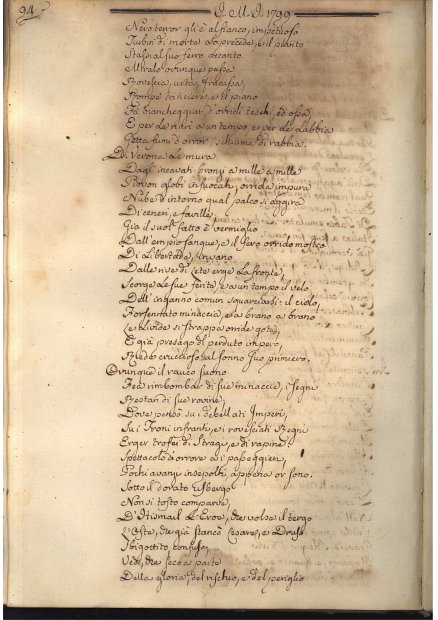 94
I. M. I. 1799
Nero terror gli è al fianco, impetuoso
Turbin di morte lo precede, e il pianto
Stassi al suo ferro accanto.
Altralo ovunque passa
Rovescia, urta, fracassa
Rompe trinciere, e il piano
Fà biancheggiar d'orridi teschi, ed ossa,
E per le nari a un tempo, e per le labbia
Getta fumi d'orror, schiume di rabbia.
Di Verona a le mura
Dagl' incavati bronzi a mille a mille
Piovon globi infuocati, orrida impura
Nube d'intorno qual palco s'aggira
Di ceneri, e faville,
Già il suol fatto è vermiglio
Dall' empio sangue, e il fiero orrido mostro
Di Libertade, invano
Dalle rive di Lete erge la fronte,
Scorge le sue ferite, e a un tempo il velo
Dell' inganno comun squarciarsi: il cielo,
Forsennato minaccia, e a brano a brano
Le livide si strappa orride gote,
E già presago di perduto impero,
Riede cruccioso al sonno suo primiero.
Ovunque il rauco suono
Fea rimbombar di sue minaccie, i segni
Restan di sue rovine;
Dove pensò su i debellati Imperi,
Su i Troni infranti, e i rovesciati Regni
Erger trofei di stragi, e di rapine:
Spettacolo d'orrore a i passeggieri,
Pochi avanzi insepolti, appena or sono.
Sotto il dorato Usbergo
Non sì tosto comparve,
D'Ittismail l'Eroe, che volse il tergo
L'Oste, che già stancò Cesare, e Druso
Sbigottito, confuso;
Vede, che seco a parte
Della gloria, del rischio, e del periglio